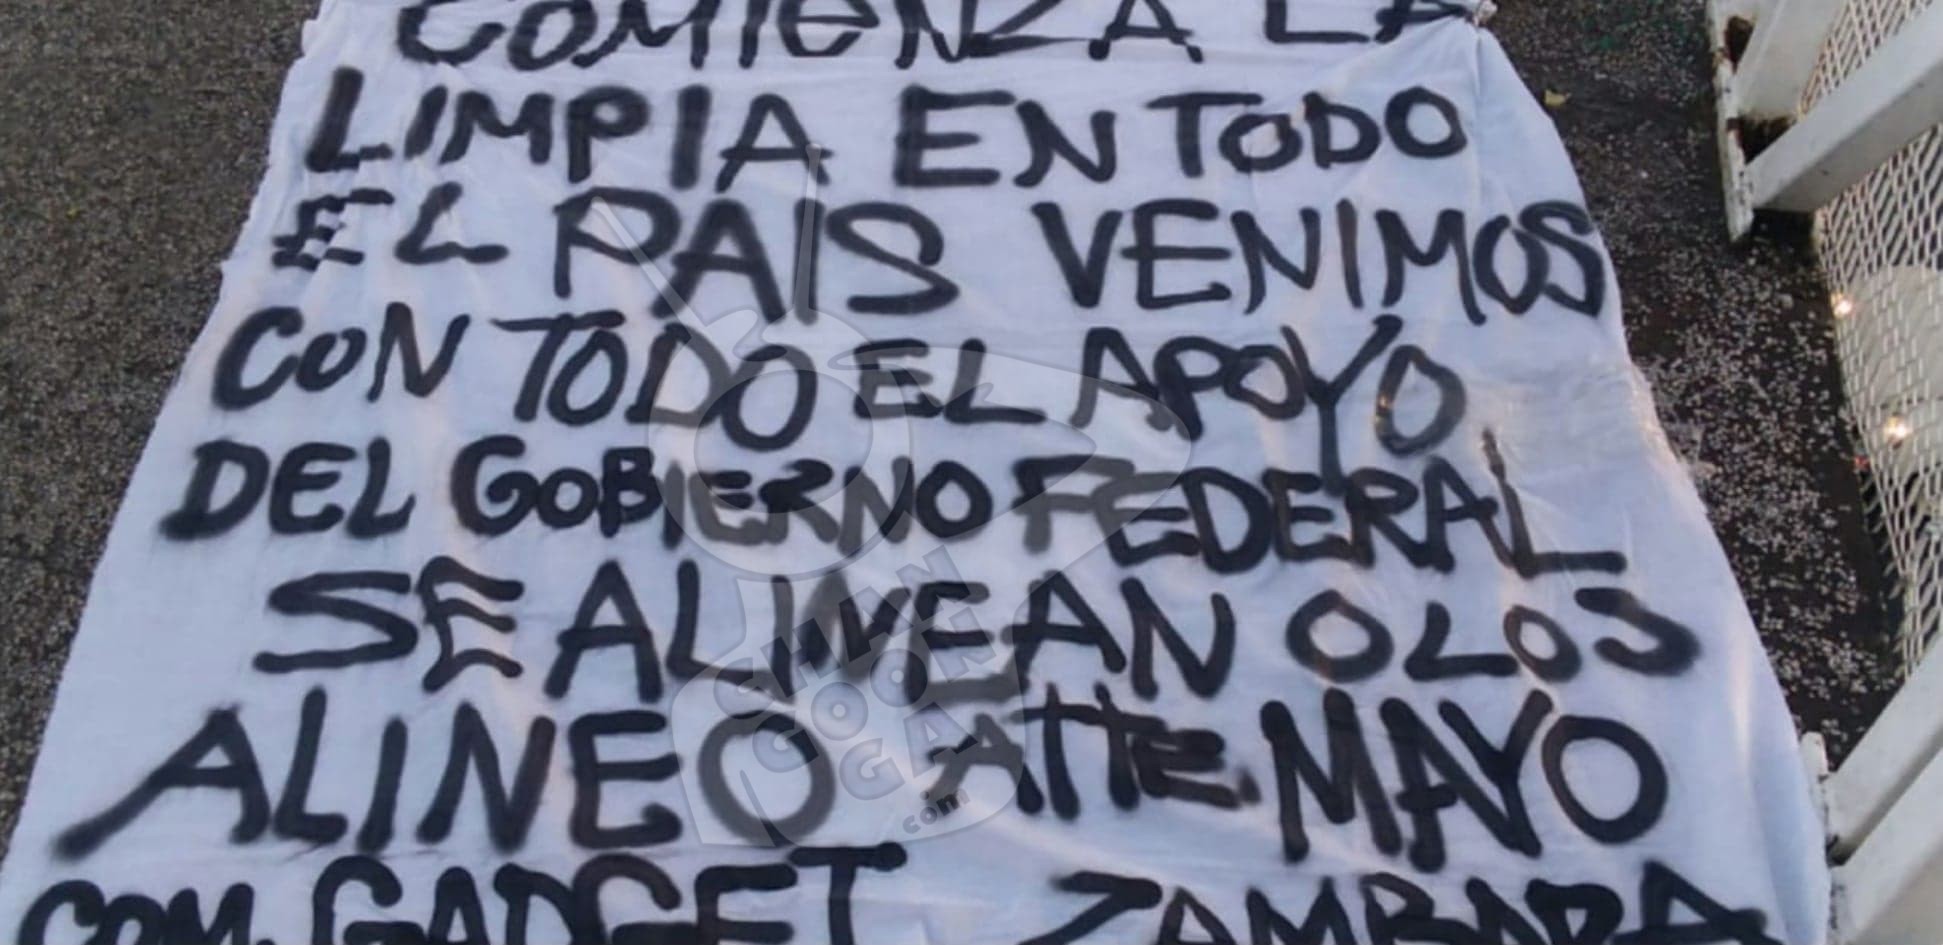 COMIENZA LA
LIMPIA EN TODO
EL PAIS VENIMOS
CON TODO EL APOYO
DEL GOBIERNO FEDERAL
SE ALINEAN O LOS
ALINEO ATTE. MAYO
COM. GADGET ZAMBADA
CHAN
GOON
GOGA
.com